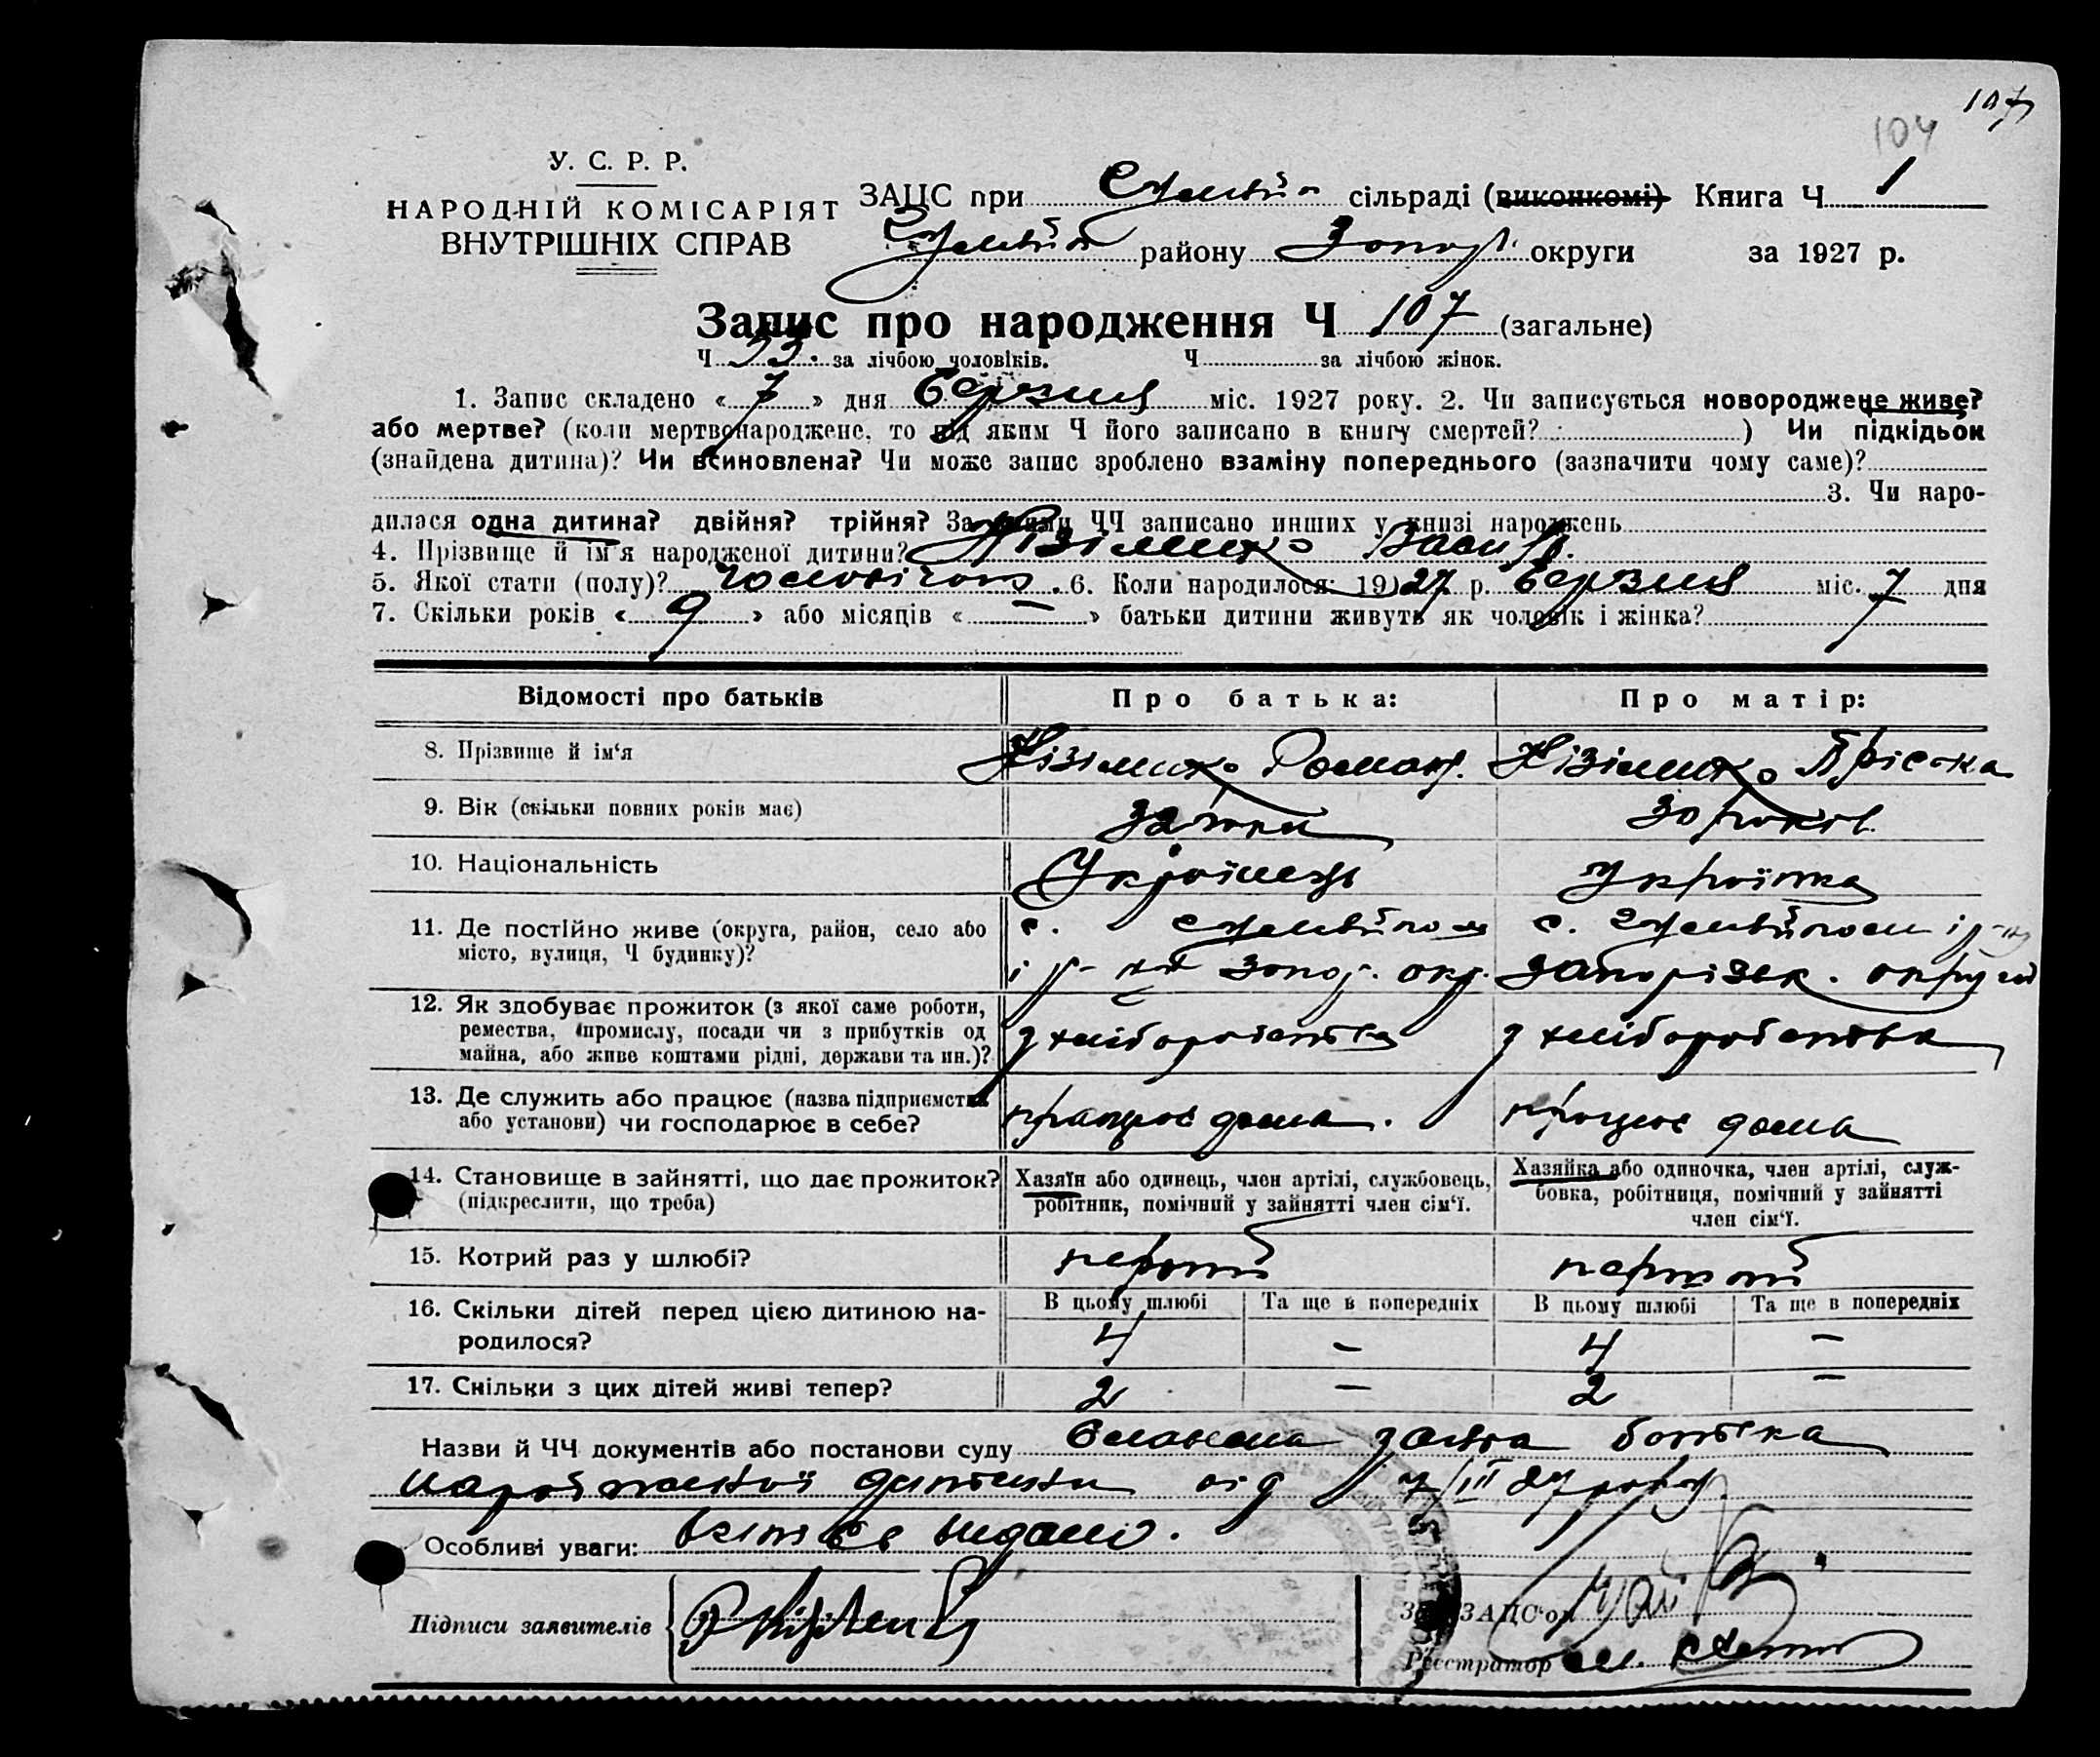 107
104
У. С. Р. Р.
НАРОДНІЙ КОМІСАРІЯТ
ВНУТРІШНІХ СПРАВ
ЗАЦС при сільраді (виконкомі) Книга Ч 1
району Запор. округи за 1927 р.
Запис про народження Ч 107 (загальне)
Ч за лічбою чоловіків. Ч за лічбою жінок.
1. Запис складено « 7 » дня березня міс. 1927 року. 2. Чи записується новороджене живе?
або мертве? (коли мертвонароджене, то під яким Ч його записано в книгу смертей? ) Чи підкідьок
(знайдена дитина)? Чи всиновлена? Чи може запис зроблено взаміну попереднього (зазначити чому саме)?
3. Чи наро-
дилася одна дитина? двійня? трійня? За якими ЧЧ записано инших у книзі народжень
4. Прізвище й ім'я народженої дитини? Нізіменко Васил.
5. Якої стати (полу)? чоловічого. 6. Коли народилося: 1927 р. березня міс. 7 дня
7. Скільки років « 9 » або місяців « — » батьки дитини живуть як чоловік і жінка?
Відомості про батьків Про батька: Про матір:
8. Прізвище й ім'я Нізіменко Роман. Нізіменко Пріська
9. Вік (скільки повних років має) 32 роки 30 років.
10. Національність Українець Українка
11. Де постійно живе (округа, район, село або с. с. і р-ну
місто, вулиця, Ч будинку)? і р- Запор. окр. Запорізьк. округи
12. Як здобуває прожиток (з якої саме роботи,
ремества, промислу, посади чи з прибутків од з хліборобства з хліборобства
майна, або живе коштами рідні, держави та ин.)?
13. Де служить або працює (назва підприємства працює дома. працює дома
або установи) чи господарює в себе?
14. Становище в зайнятті, що дає прожиток? Хазяїн або одинець, член артілі, службовець, Хазяйка або одиночка, член артілі, служ-
(підкреслити, що треба) робітник, помічний у зайнятті член сім'ї. бовка, робітниця, помічний у зайнятті
член сім'ї.
15. Котрий раз у шлюбі? первий первий
16. Скільки дітей перед цією дитиною на- В цьому шлюбі Та ще в попередніх В цьому шлюбі Та ще в попередніх
родилося? 4 — 4 —
17. Скільки з цих дітей живі тепер? 2 — 2 —
Назви й ЧЧ документів або постанови суду заява батька
народженої дитини від 7/III 27 року
Особливі уваги: видано.
Підписи заявителів ЗАЦС'ом
Реєстратор